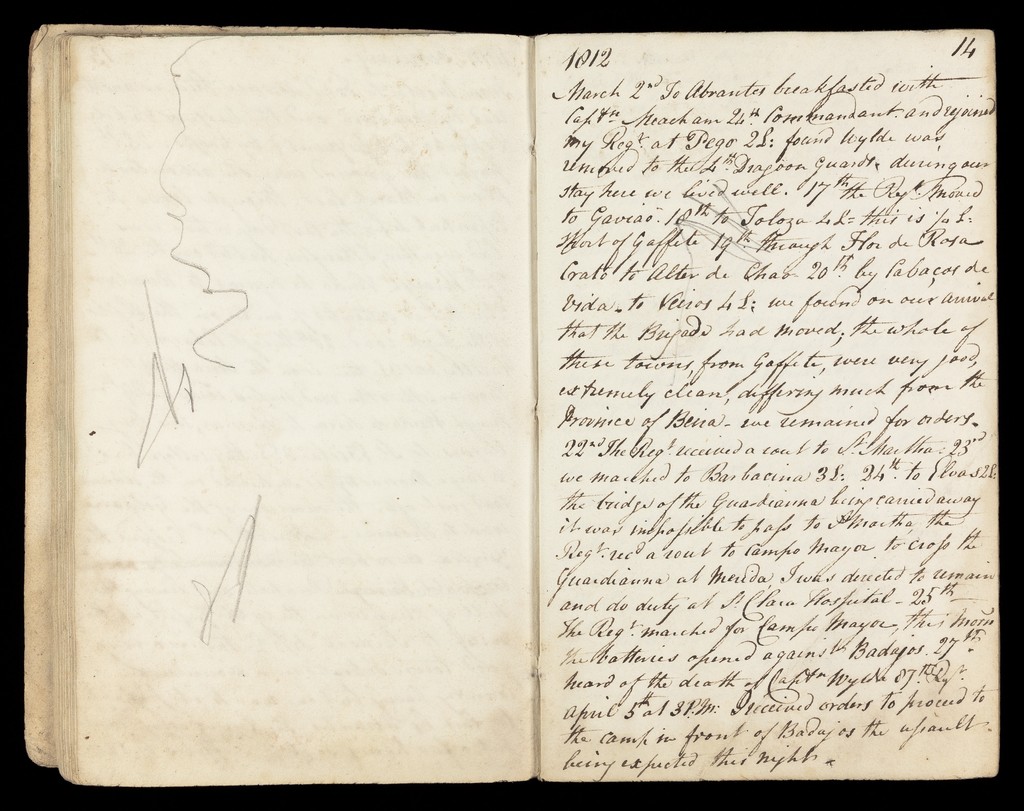 1812
14
March 2nd To Abrantes breakfasted with
Captn Meacham 24th Commandant. and rejoined
my Regt. at Pego 2L: found Wylde was
removed to the 4th Dragoon Guards. during our
stay here we lived well. 17th the Regt. moved
to Gaviao. 18th to Toloza 4L= this is ½ L:
short of Gaffete 19th. through Flor de Rosa
Crato to Alter de Chao 20th by Cabaços de
Vida. to Veiros 4L: we found on our arrival
that the Brigade had moved; the whole of
these towns, from Gaffete, were very good,
extremely clean, differing much from the
Province of Beira - we remained for orders.
22nd The Regt. received a rout to St. Martha. 23d
we marched to Barbacina 3L: 24th. to Elvas 2L:
the bridge of the Guardianna being carried away
it was impossible to pass to St Martha the
Regt. recd a rout to Campo Mayor, to cross the
Guardianna at Merida I was directed to remain
and do duty at St. Clara Hospital - 25th
The Regt. marched for Campo Mayor, this morn
the batteries opened against Badajos. 27th.
heard of the death of Captn Wylde 87th Rgt.
April 5th at 3P.M: I received orders to proceed to
the camp in front of Badajos the assault
being expected this night.